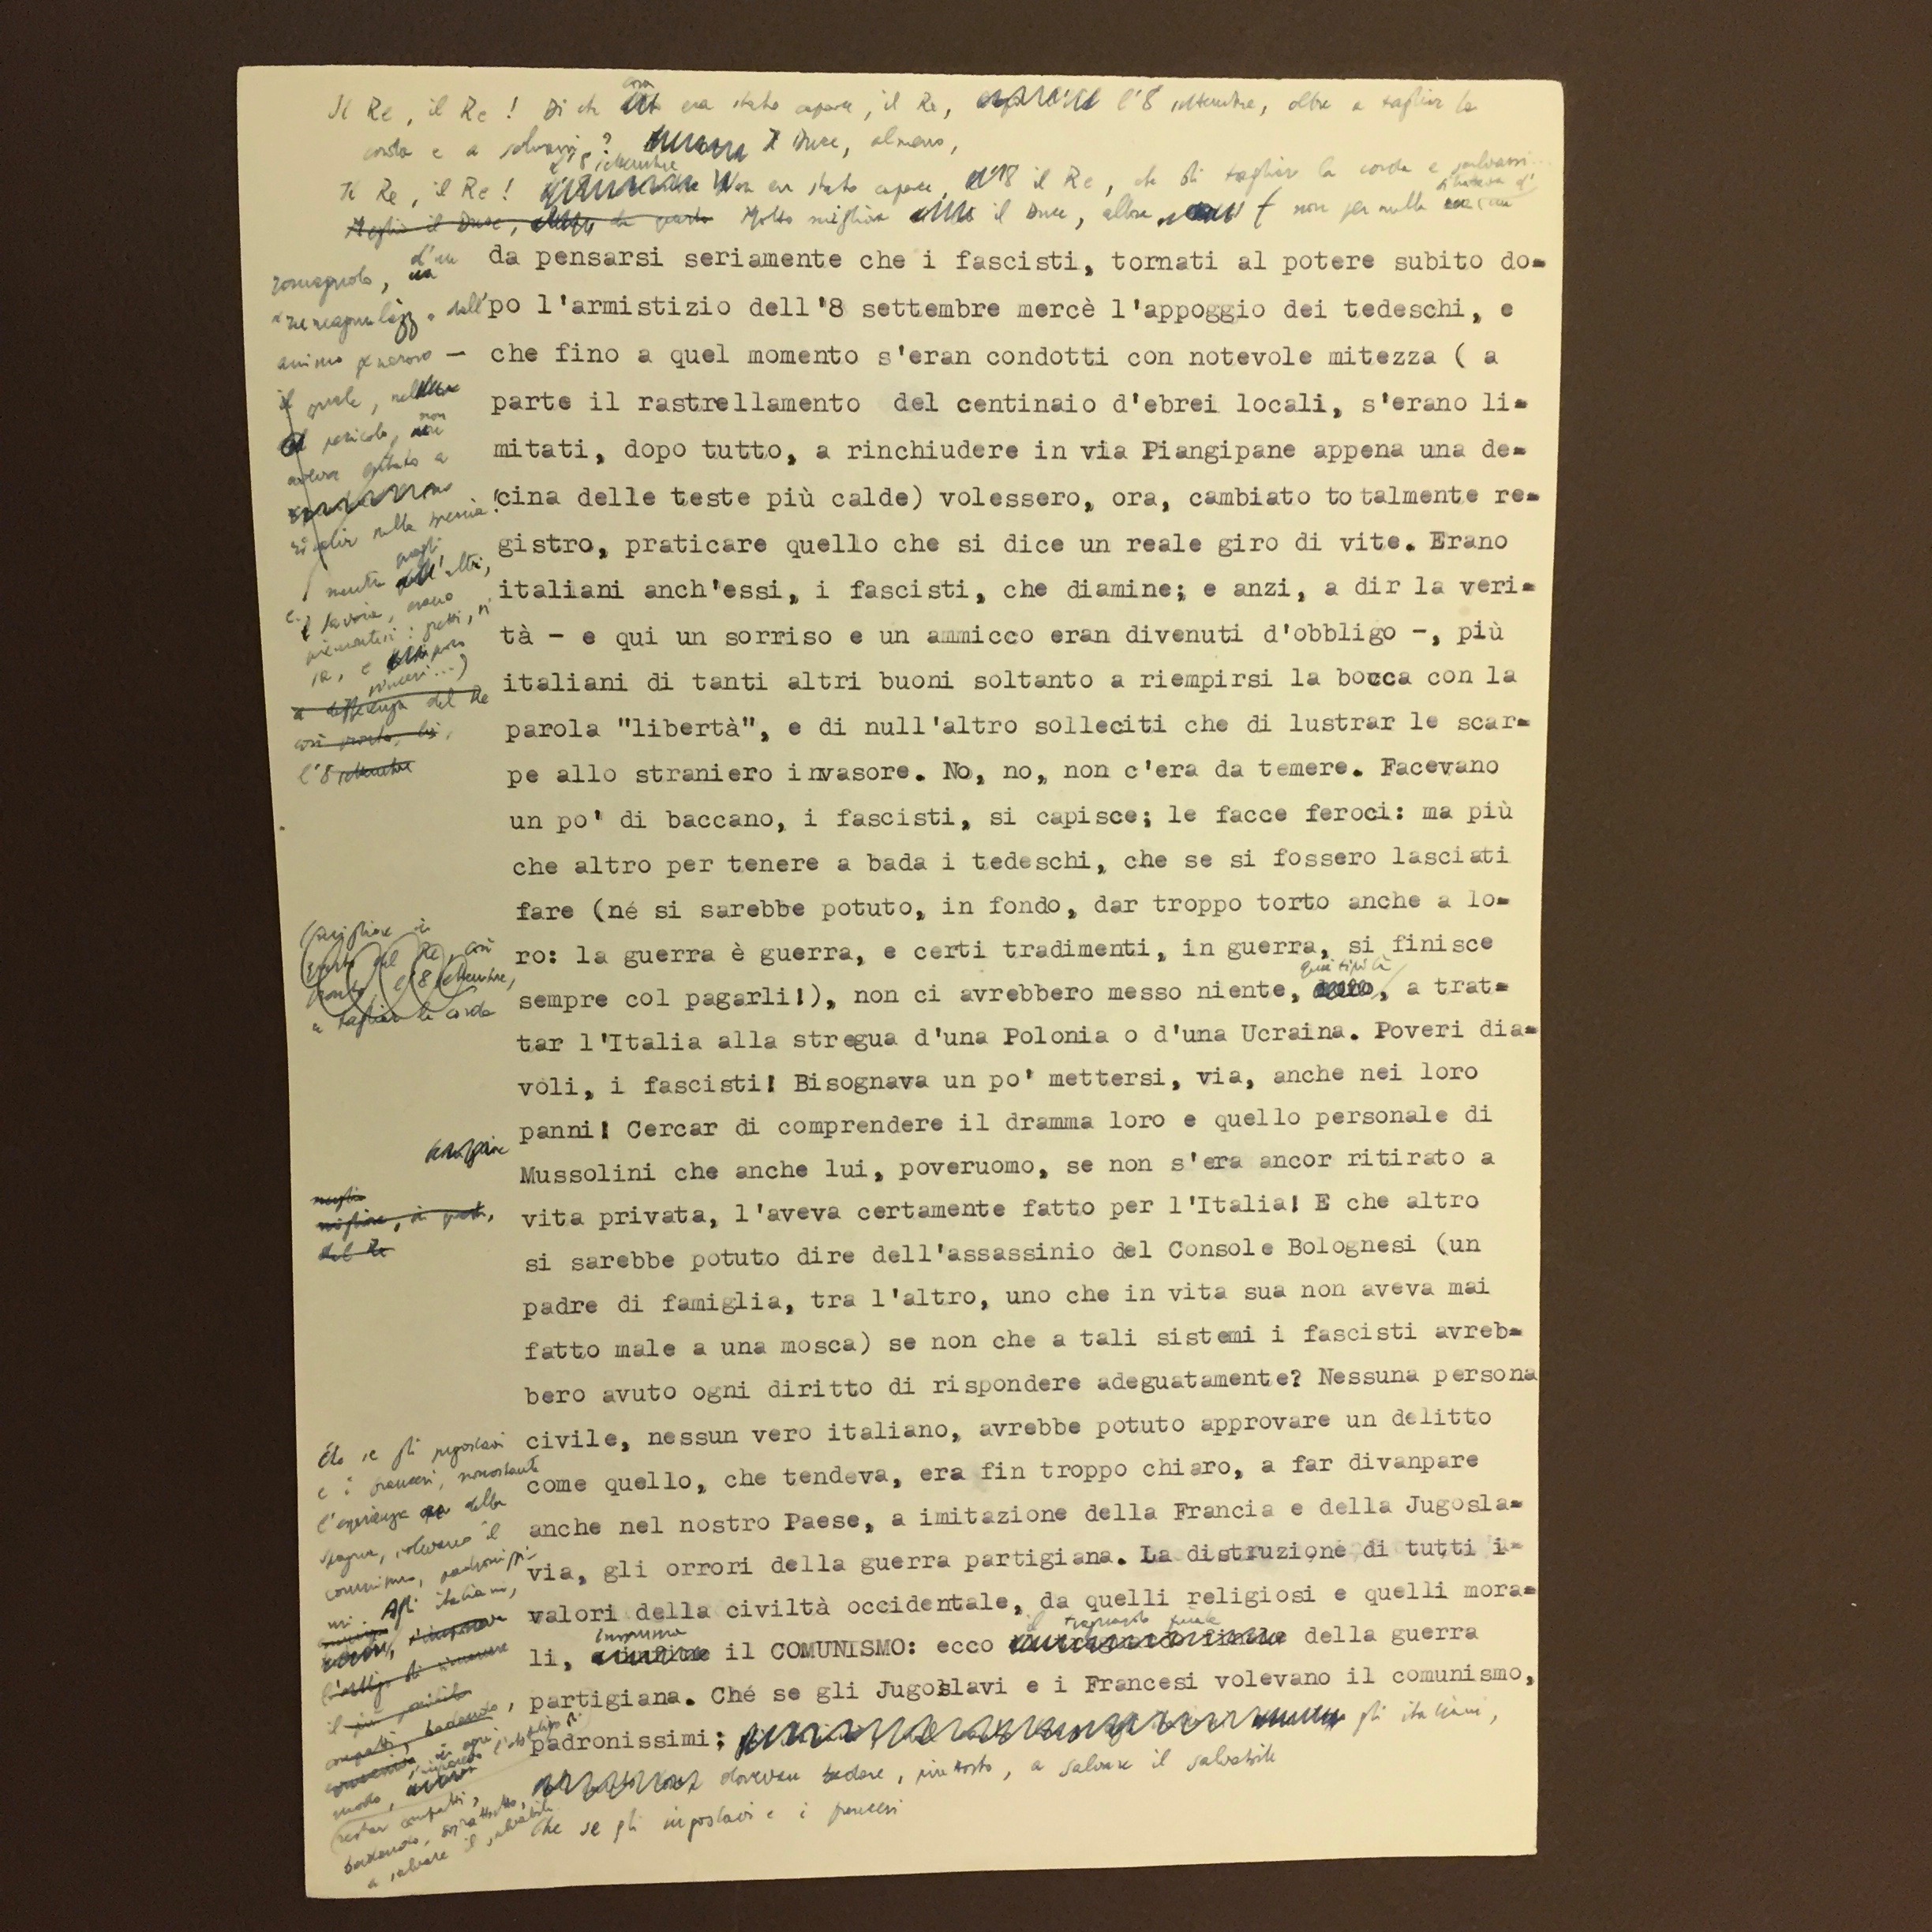 Il Re, il Re! Di che cosa era stato capace, il Re, l'8 settembre, oltre a tagliar la
corda e a salvarsi? Il Duce, almeno,
l'8 settembre
Il Re, il Re! Non era stato capace, il Re, che di tagliar la corda e salvarsi...
Meglio il Duce, Molto migliore il Duce, allora non per nulla si trattava d'
romagnolo, d'un
dall'
animo generoso —
il quale, nel
pericolo, non
aveva esitato a
risalir sulla breccia!
mentre quegli altri,
i Savoia, erano
piemontesi: gretti, sì
sa, e poco
sinceri...)
a differenza del Re
così pronto, lui,
l'8 settembre
da pensarsi seriamente che i fascisti, tornati al potere subito do-
po l'armistizio dell'8 settembre mercè l'appoggio dei tedeschi, e
che fino a quel momento s'eran condotti con notevole mitezza ( a
parte il rastrellamento del centinaio d'ebrei locali, s'erano li-
mitati, dopo tutto, a rinchiudere in via Piangipane appena una de-
cina delle teste più calde) volessero, ora, cambiato to talmente re-
gistro, praticare quello che si dice un reale giro di vite. Erano
italiani anch'essi, i fascisti, che diamine; e anzi, a dir la veri-
tà - e qui un sorriso e un ammicco eran divenuti d'obbligo -, più
italiani di tanti altri buoni soltanto a riempirsi la bocca con la
parola "libertà", e di null'altro solleciti che di lustrar le scar-
pe allo straniero invasore. No, no, non c'era da temere. Facevano
un po' di baccano, i fascisti, si capisce; le facce feroci: ma più
che altro per tenere a bada i tedeschi, che se si fossero lasciati
fare (né si sarebbe potuto, in fondo, dar troppo torto anche a lo-
ro: la guerra è guerra, e certi tradimenti, in guerra, si finisce
quei tipi là
sempre col pagarli!), non ci avrebbero messo niente, , a trat-
tar l'Italia alla stregua d'una Polonia o d'una Ucraina. Poveri dia-
voli, i fascisti! Bisognava un po' mettersi, via, anche nei loro
panni! Cercar di comprendere il dramma loro e quello personale di
Mussolini che anche lui, poveruomo, se non s'era ancor ritirato a
vita privata, l'aveva certamente fatto per l'Italia! E che altro
si sarebbe potuto dire dell'assassinio del Console Bolognesi (un
padre di famiglia, tra l'altro, uno che in vita sua non aveva mai
fatto male a una mosca) se non che a tali sistemi i fascisti avreb-
bero avuto ogni diritto di rispondere adeguatamente? Nessuna persona
civile, nessun vero italiano, avrebbe potuto approvare un delitto
come quello, che tendeva, era fin troppo chiaro, a far divanpare
anche nel nostro Paese, a imitazione della Francia e della Jugosla-
via, gli orrori della guerra partigiana. La distruzione di tutti i-
valori della civiltà occidentale, da quelli religiosi e quelli mora-
insomma il traguardo finale
li, il COMUNISMO: ecco della guerra
partigiana. Ché se gli Jugoslavi e i Francesi volevano il comunismo,
padronissimi; gli italiani,
dovevan badare, piuttosto, a salvare il salvabile
Ché se gli jugoslavi e i francesi
(migliore in
del Re, così
pronto l'8 settembre,
a tagliar la corda
meglio
migliore,
del Re
Ché se gli jugoslavi
e i francesi, nonostante
l'esperienza della
Spagna, volevano il
comunismo, padronissi-
mi. Agli italiani,
compatti, badando,
modo,
restar compatti,
badando, soprattutto,
a salvare il salvabile